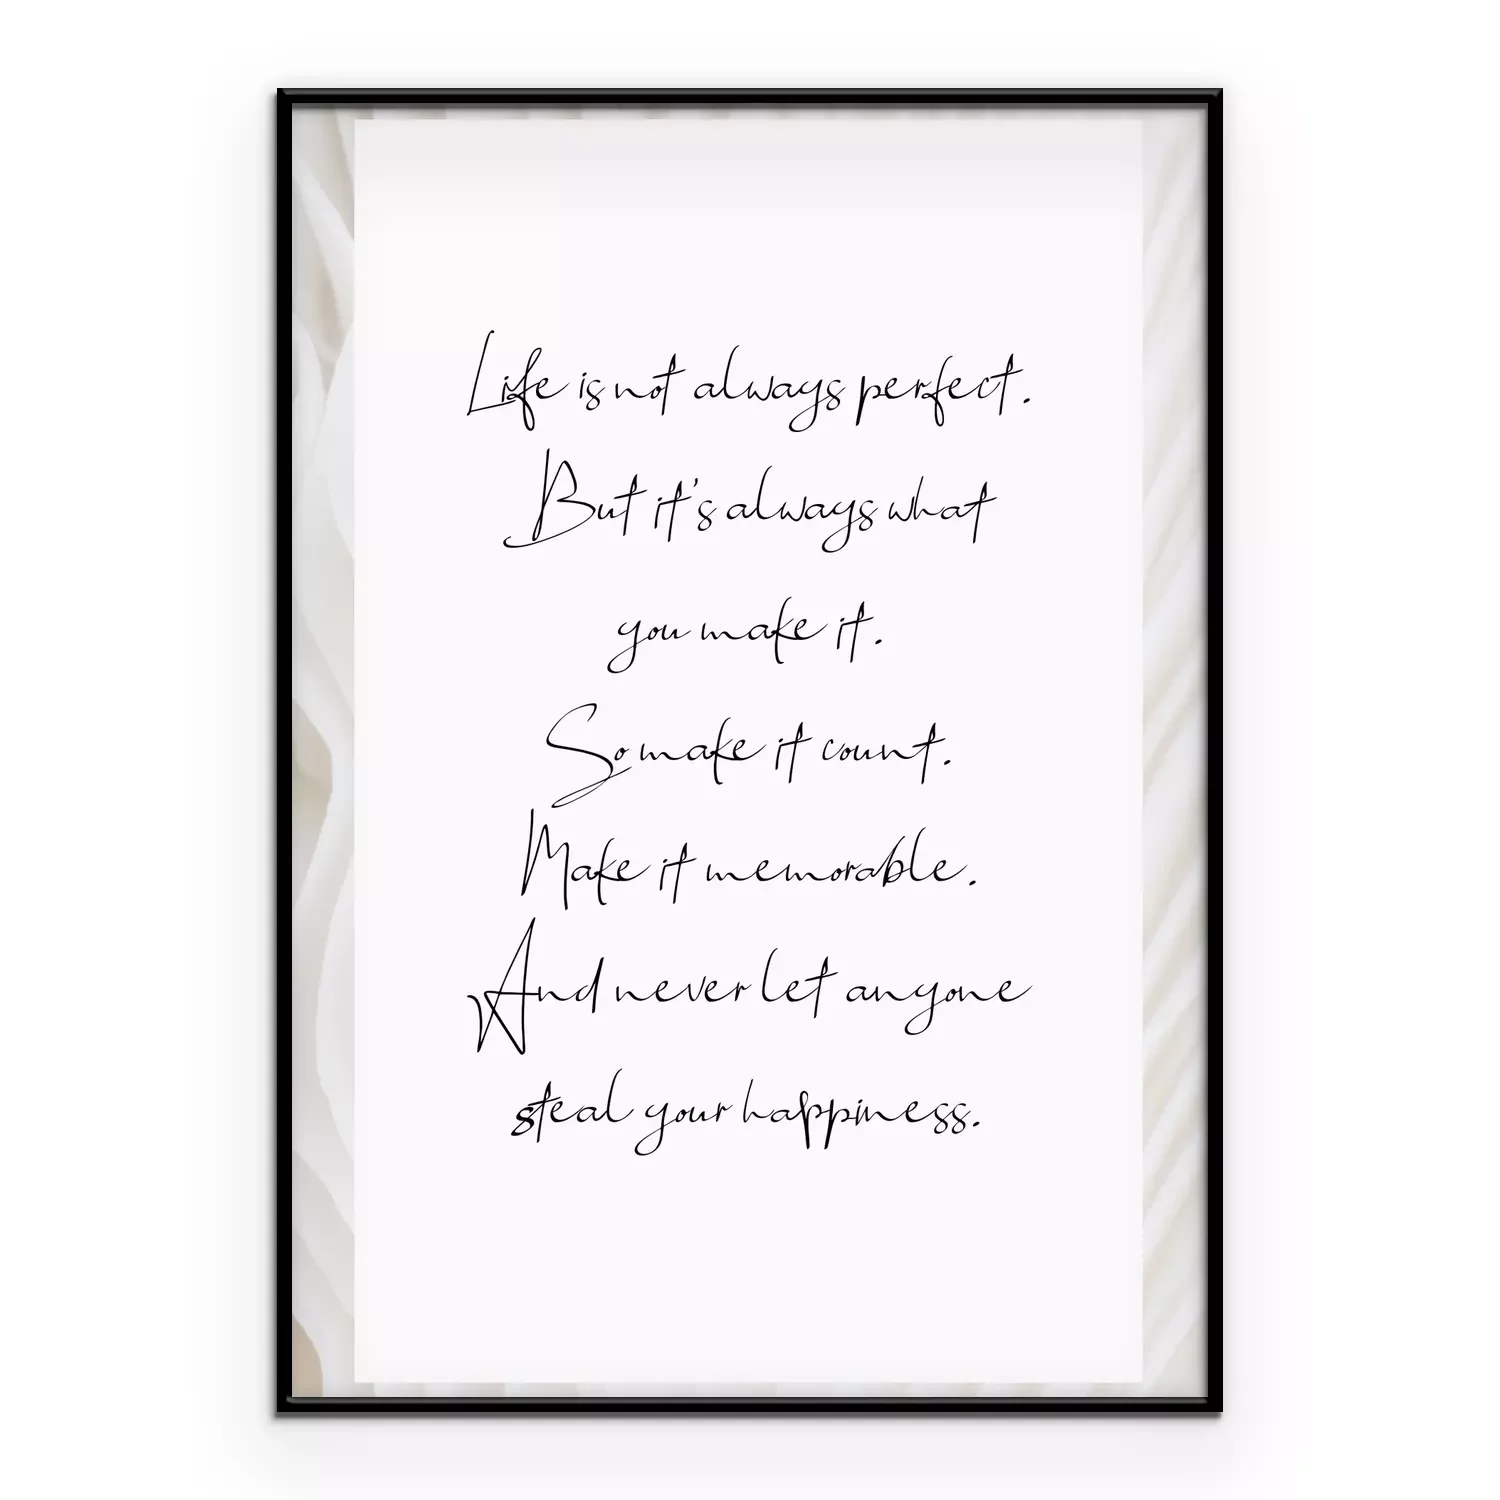 Life is not always perfect.
But it's always what
you make it.
So make it count.
Make it memorable.
And never let anyone
steal your happiness.